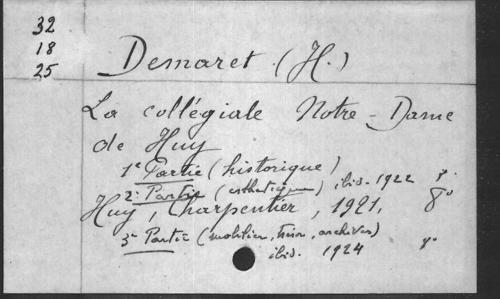 32
18
25
Demaret (H.)
La collégiale Notre-Dame
de Huy
1e Partie (historique)
2e Partie (esthétique) ibid. 1922 8°
Huy, Charpentier, 1921, 8°
3e Partie (mobilier, trésor, archives)
ibid. 1924 8°